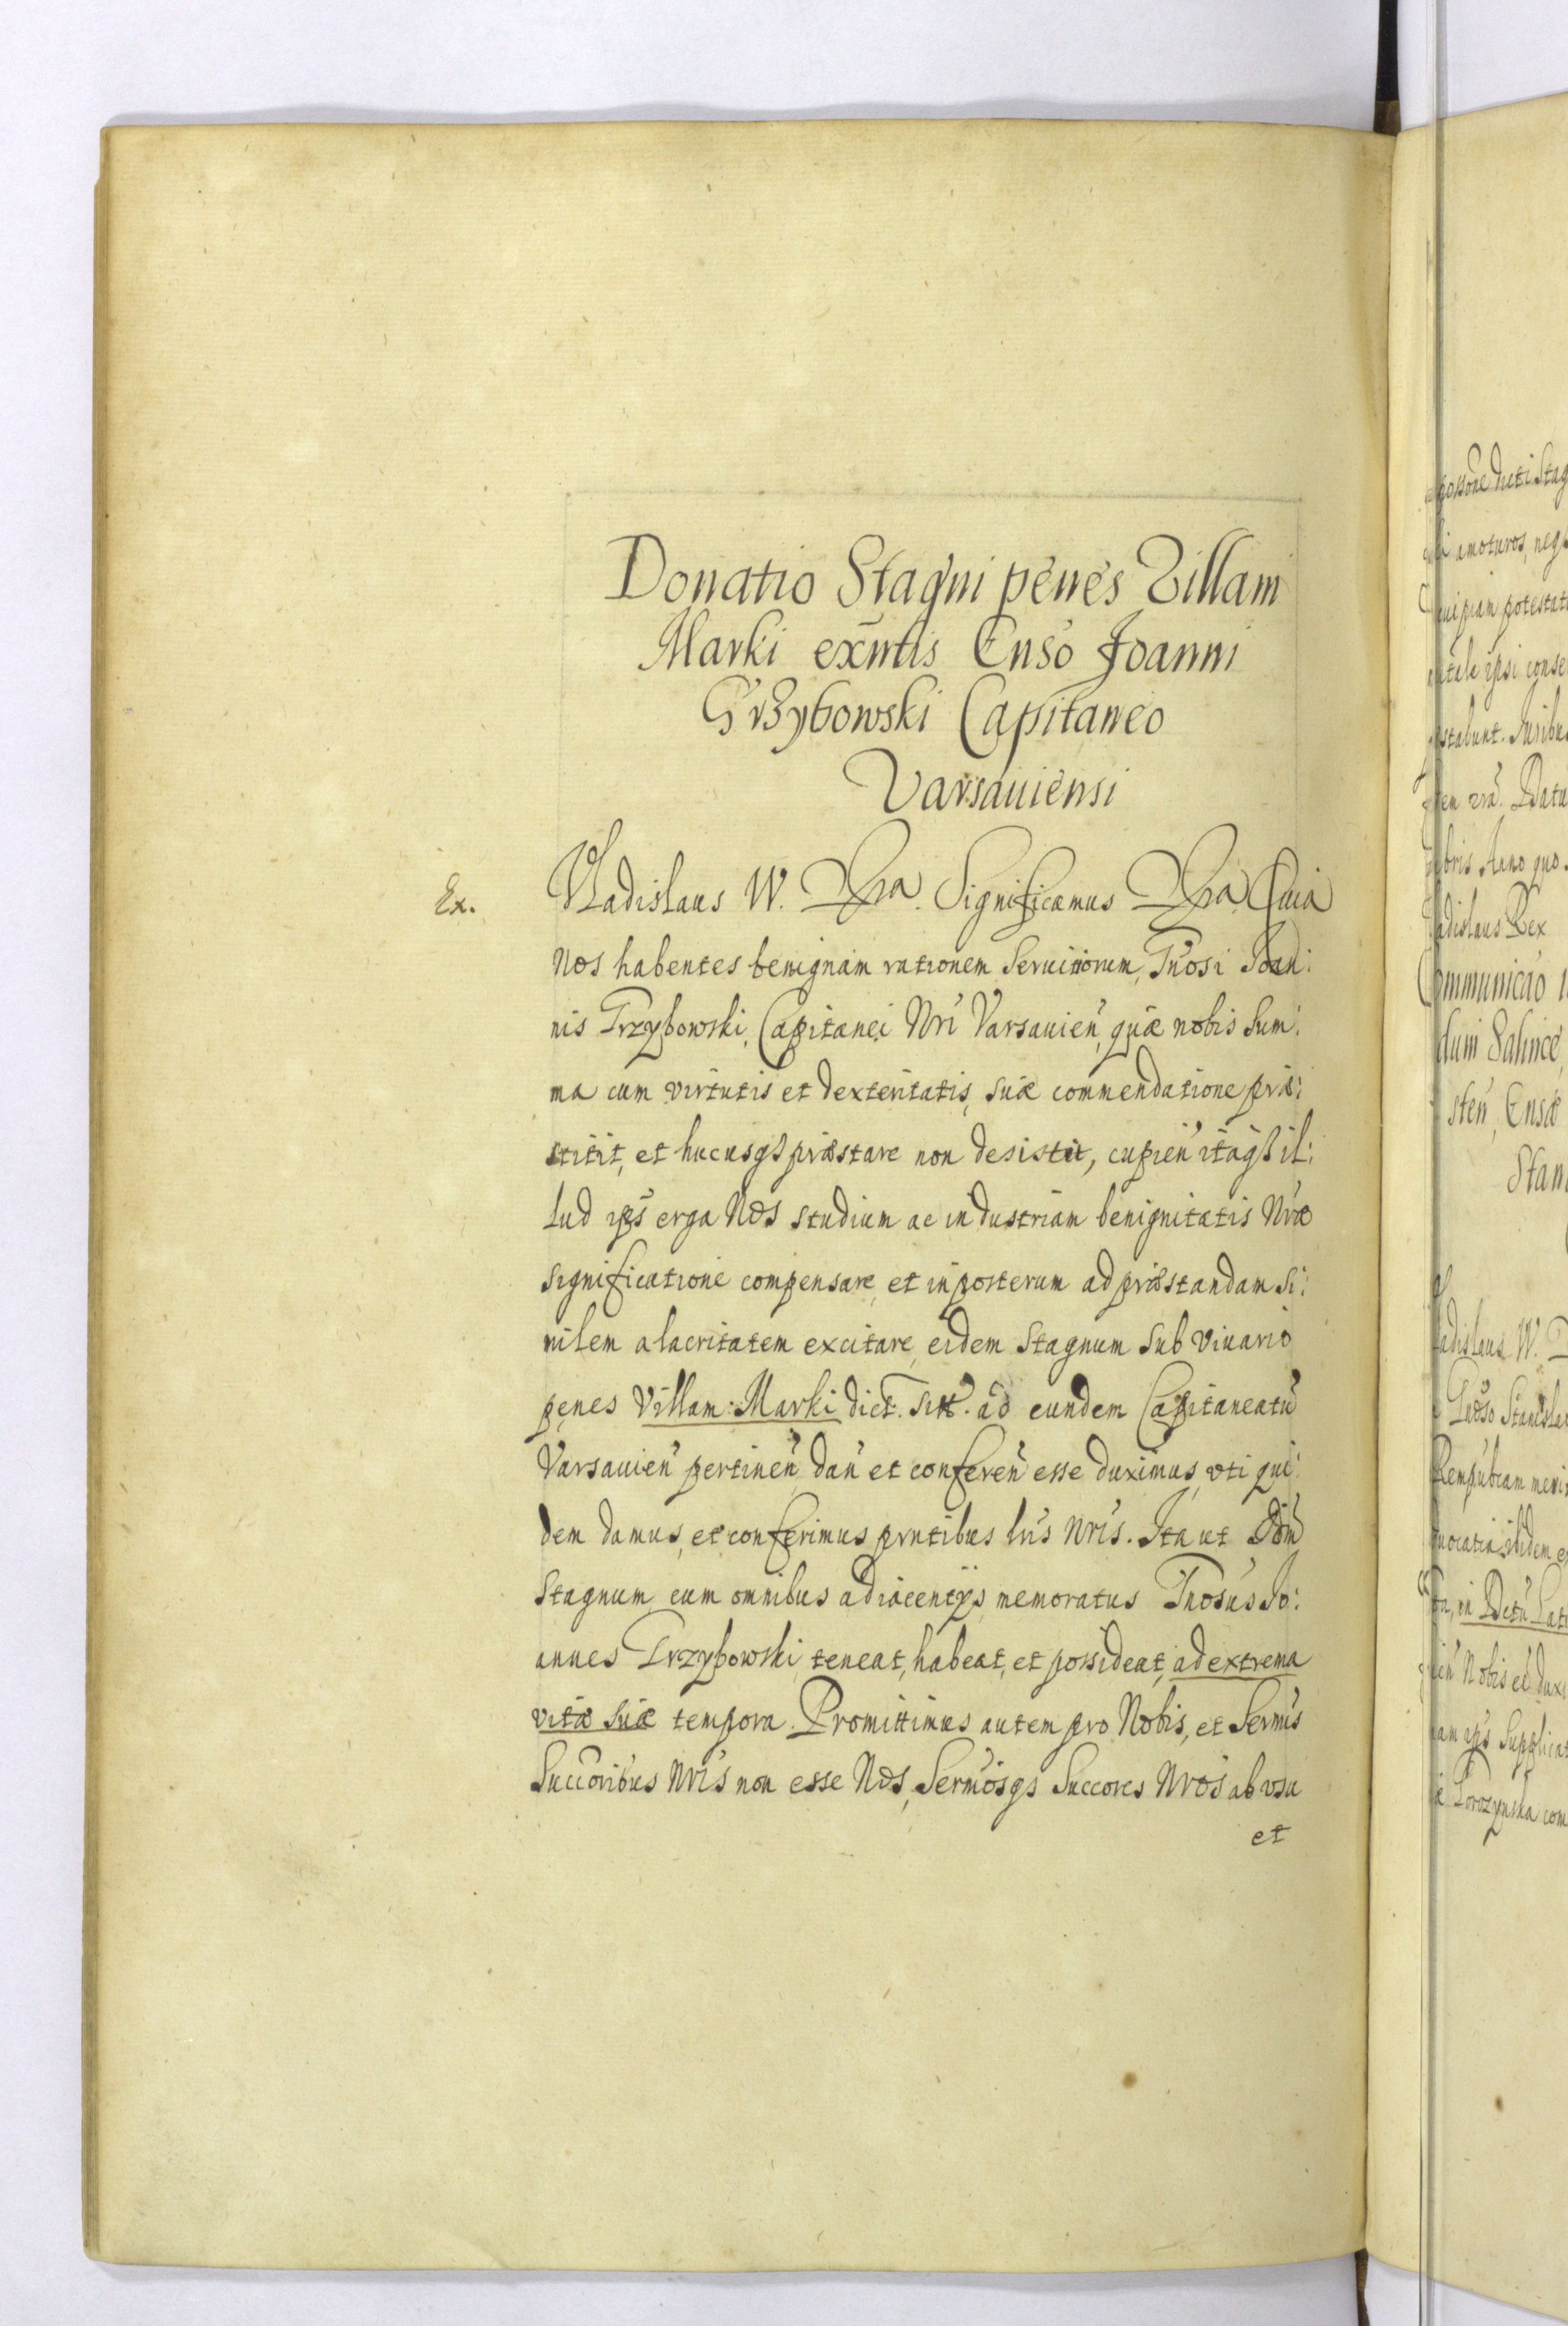 Donatio Stagni penes Villam
Marki exñtis Gnso Joanni
Grzybowski Capitaneo
Varsauiensi
Ex.
Vladislaus IV. Dgra. Significamus Dgra. Quia
Nos habentes benignam rationem Seruitiorum, Gnosi Joan:
nis Grzybowski, Capitanei Nri Varsauien, quæ nobis Sum:
ma cum virtutis et dexteritatis, suæ commendatione præ:
stitit, et hucusqs præstare non desistit, cupien itaqs il:
lud ips erga Nos studium ac industriam benignitatis Nræ
significatione compensare, et inposterum ad præstandam si:
milem alacritatem excitare, eidem Stagnum sub Viuario
penes Villam: Marki dict. sitt. ad eundem Capitaneatũ
Varsauien pertinen, dan et conferen esse duximus, vti qui:
dem damus, et conferimus prntibus lris nris. Ita ut Dõm
Stagnum cum omnibus adiacentijs, memoratus Gnosus Jo:
annes Grzybowski, teneat, habeat, et possideat, ad extrema
vitæ suæ tempora. Promittimus autem pro Nobis, et Sermis
Succoribus Nris non esse Nos, Sermosqs Succores Nros ab vsu
et
possone dicti Stag
amoturos, neq
cuipiam potestat
tale ipsi conse
stabunt. Juribu
Datu
bris Anno quo
adislaus Rex
Communicão
Salince
sten, Gnsæ
Stan
adislaus W. D
Gnoso Stanisla
Rempubcam meri
ibidem
in Dictu
Nobis ee duxi
ips Supplicat
com